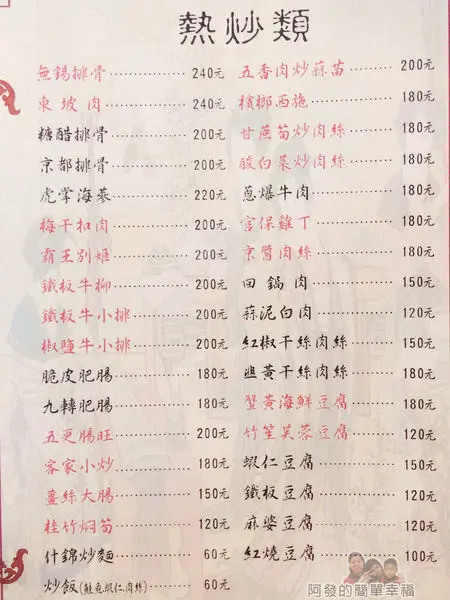 熱炒類
無錫排骨 240元
東坡肉 240元
糖醋排骨 200元
京都排骨 200元
虎掌海蔘 220元
梅干扣肉 200元
霸王別姬 200元
鐵板牛柳 200元
鐵板牛小排 200元
椒鹽牛小排 200元
脆皮肥腸 180元
九轉肥腸 180元
五更腸旺 200元
客家小炒 180元
薑絲大腸 150元
桂竹焖筍 120元
什錦炒麵 60元
炒飯(鮭魚蝦仁肉絲) 60元
五香肉炒蒜苗 200元
檳榔西施 180元
甘蔗筍炒肉絲 180元
酸白菜炒肉絲 180元
蔥爆牛肉 180元
宮保雞丁 180元
京醬肉絲 180元
回鍋肉 150元
蒜泥白肉 120元
紅椒干絲肉絲 150元
韮黃干絲肉絲 180元
蟹黃海鮮豆腐 180元
竹笙芙蓉豆腐 120元
蝦仁豆腐 150元
鐵板豆腐 120元
麻婆豆腐 120元
紅燒豆腐 100元
阿發的簡單幸福